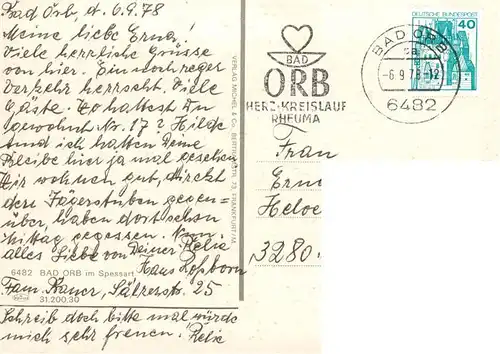 Bad Orb, d. 6.9.78
Meine liebe Erna!
Viele herrliche Grüsse
von hier. Ein noch reger
Verkehr herrscht. Viele
Gäste. Wo hattest Du
gewohnt Nr. 17? Hilde
und ich hatten Deine
Bleibe hier ja mal gesehen
Wir wohnen gut, direkt
den Jägerstuben gegen=
über, haben dort schon
Mittag gegessen. Nun
alles Liebe von Deiner Relie
Hans
6482 BAD ORB im Spessart
Fam. Sälzerstr. 25
31.200.30
Schreib doch bitte mal würde
mich sehr freuen. Relie
VERLAG MICHEL & Co., BERTRAMSTR. 73, FRANKFURT/M.
BAD
ORB
HERZ-KREISLAUF
RHEUMA
BAD ORB
-6.9.78-12
6482
DEUTSCHE BUNDESPOST
40
Frau
Ern
Heloe
3280